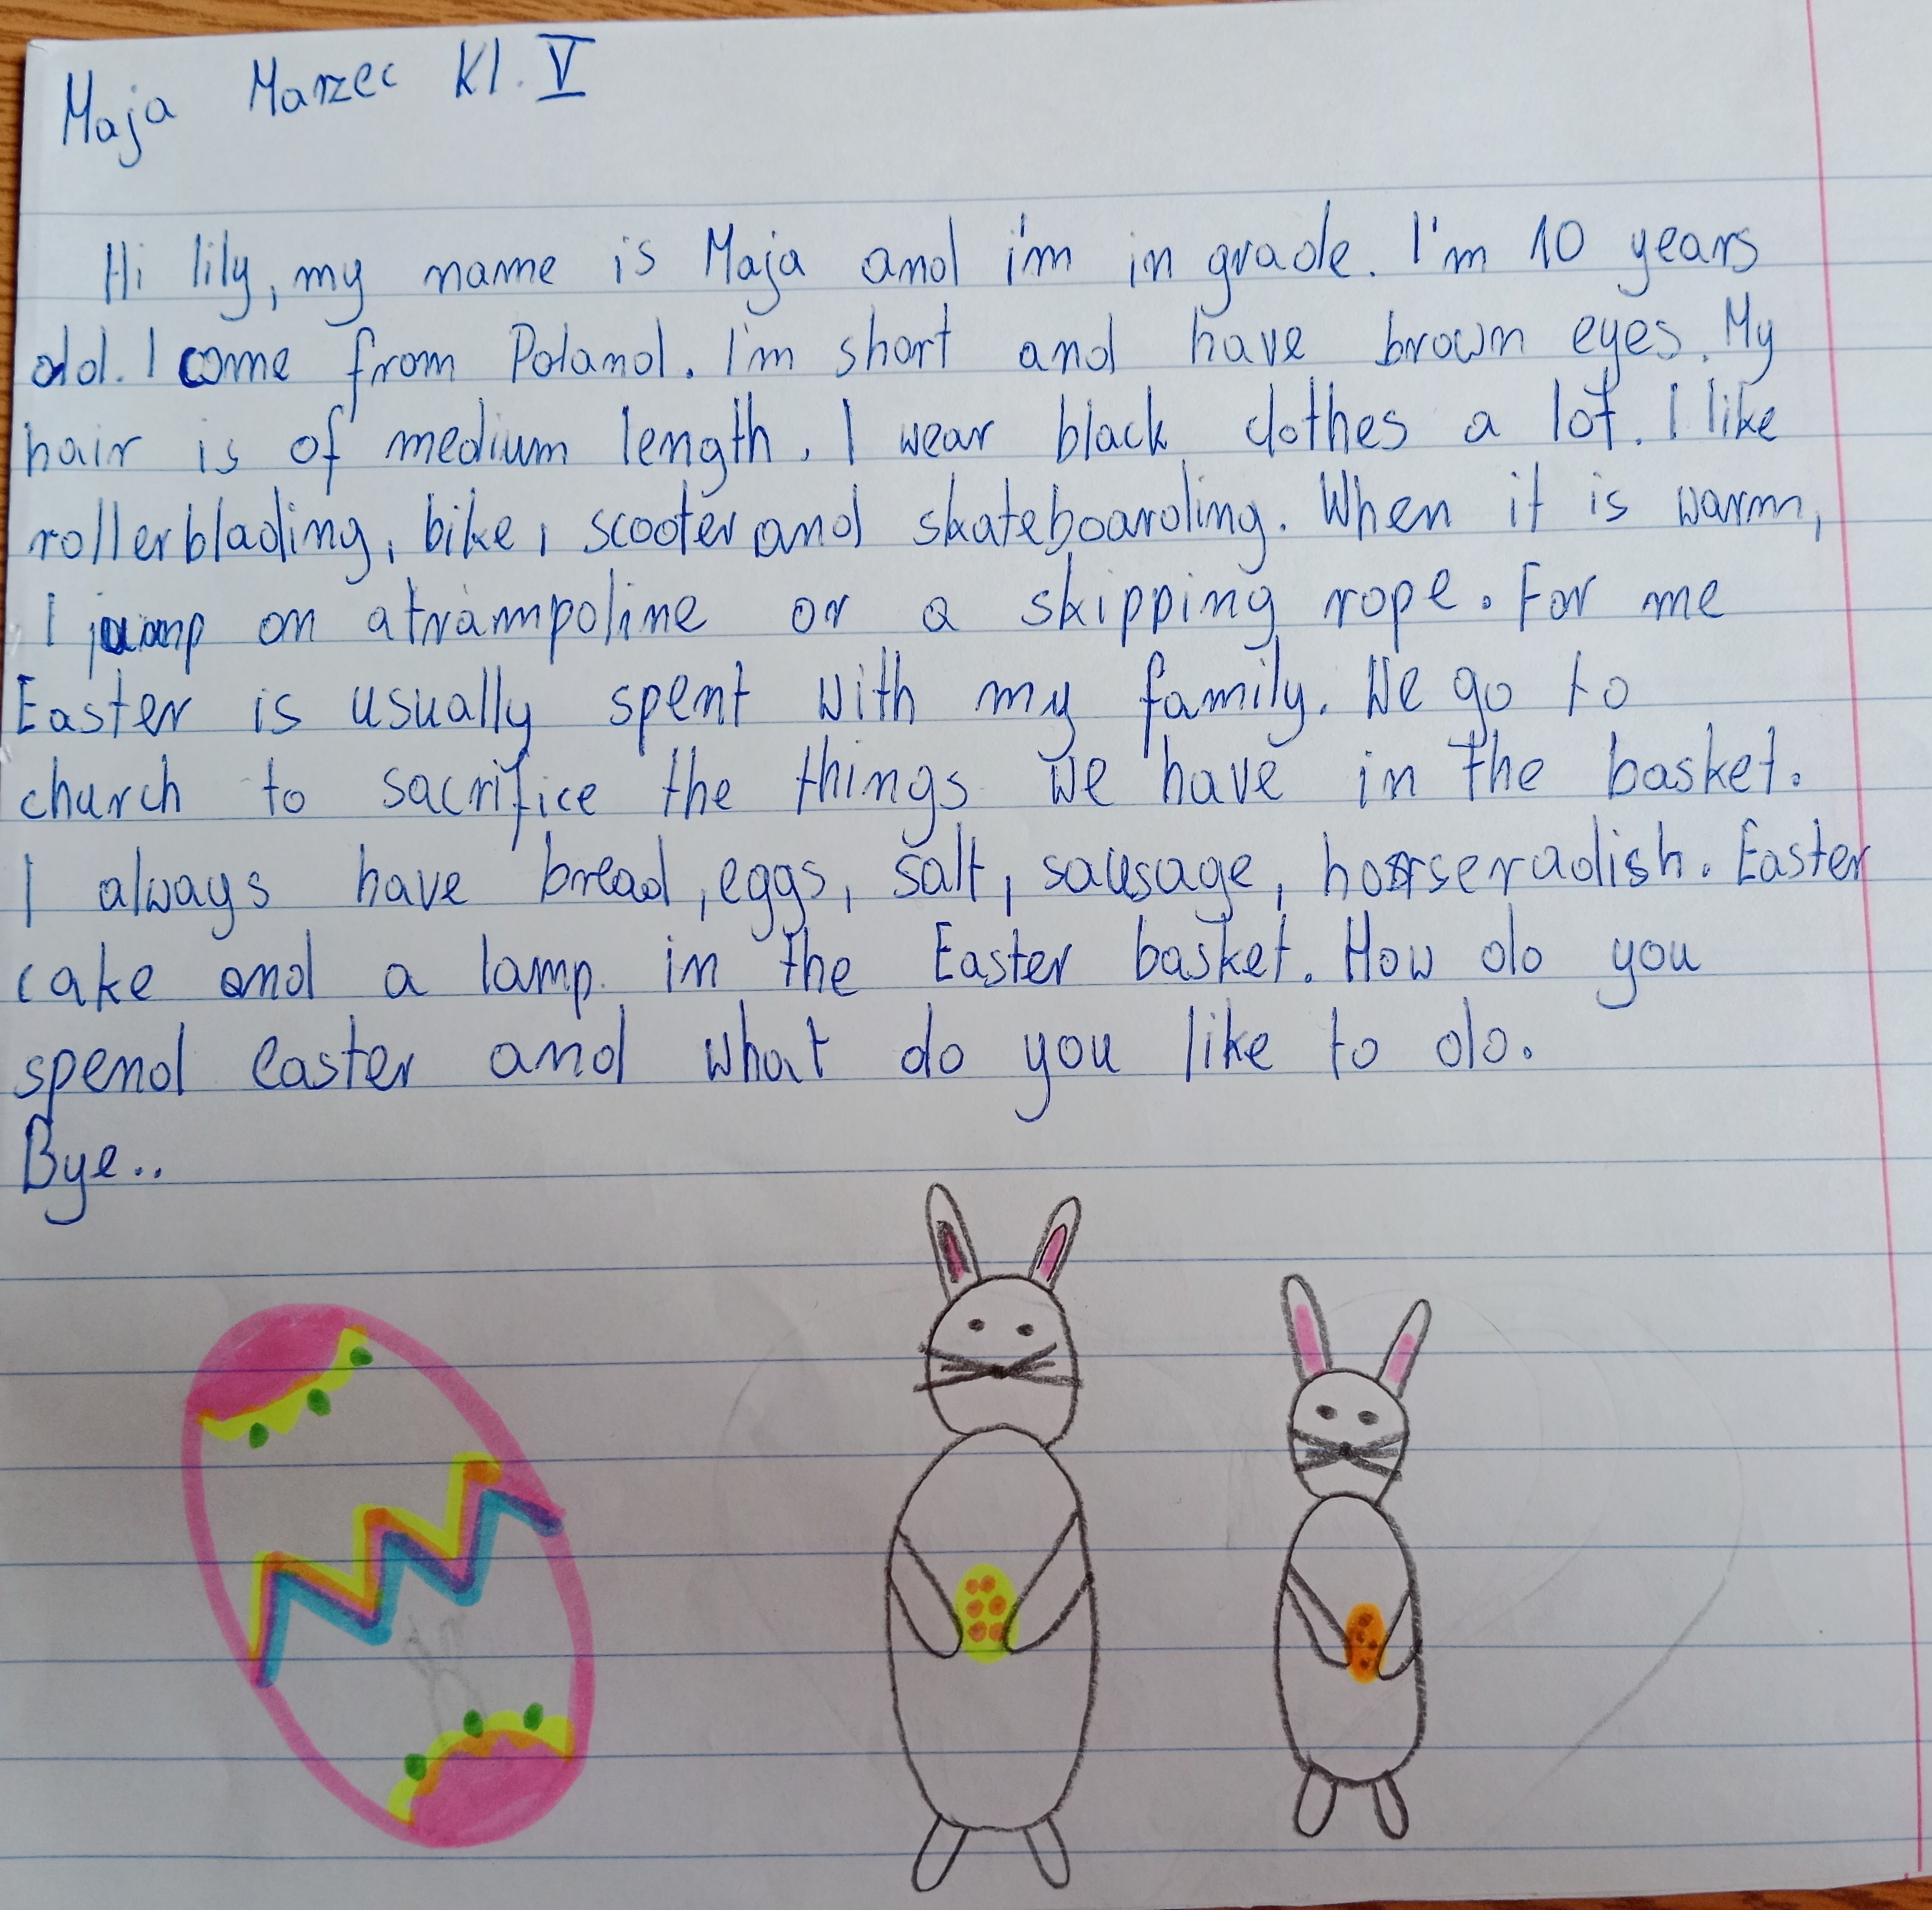 Maja Marzec Kl. V
Hi lily, my name is Maja and i'm in grade. I'm 10 years
old. I come from Poland. I'm short and have brown eyes. My
hair is of medium length. I wear black clothes a lot. I like
rollerblading, bike, scooter and skateboarding. When it is warm,
I jump on a trampoline or a skipping rope. For me
Easter is usually spent with my family. We go to
church to sacrifice the things we have in the basket.
I always have bread, eggs, salt, sausage, horseradish. Easter
cake and a lamp in the Easter basket. How do you
spend easter and what do you like to do.
Bye..